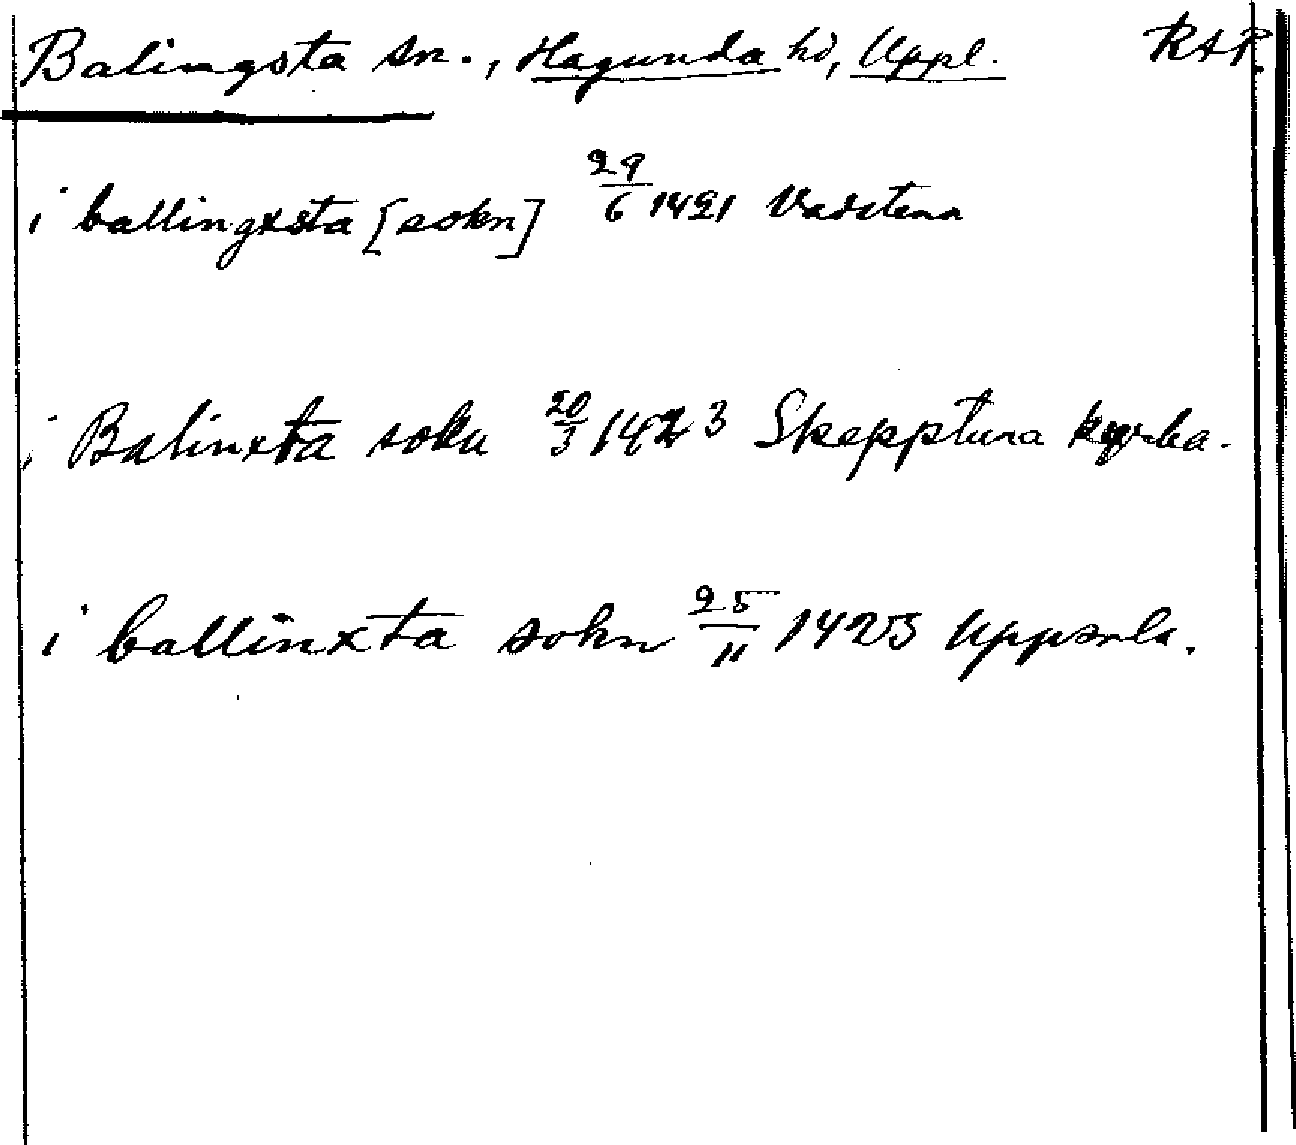 Balingsta sn., Hagunda hd, Uppl. RAP.
i ballingxsta [sokn] 29/6 1421 Vadstena
i Balinxta sokn 20/3 1423 Skepptuna kyrka.
i ballinxta sokn 25/11 1425 Uppsala.